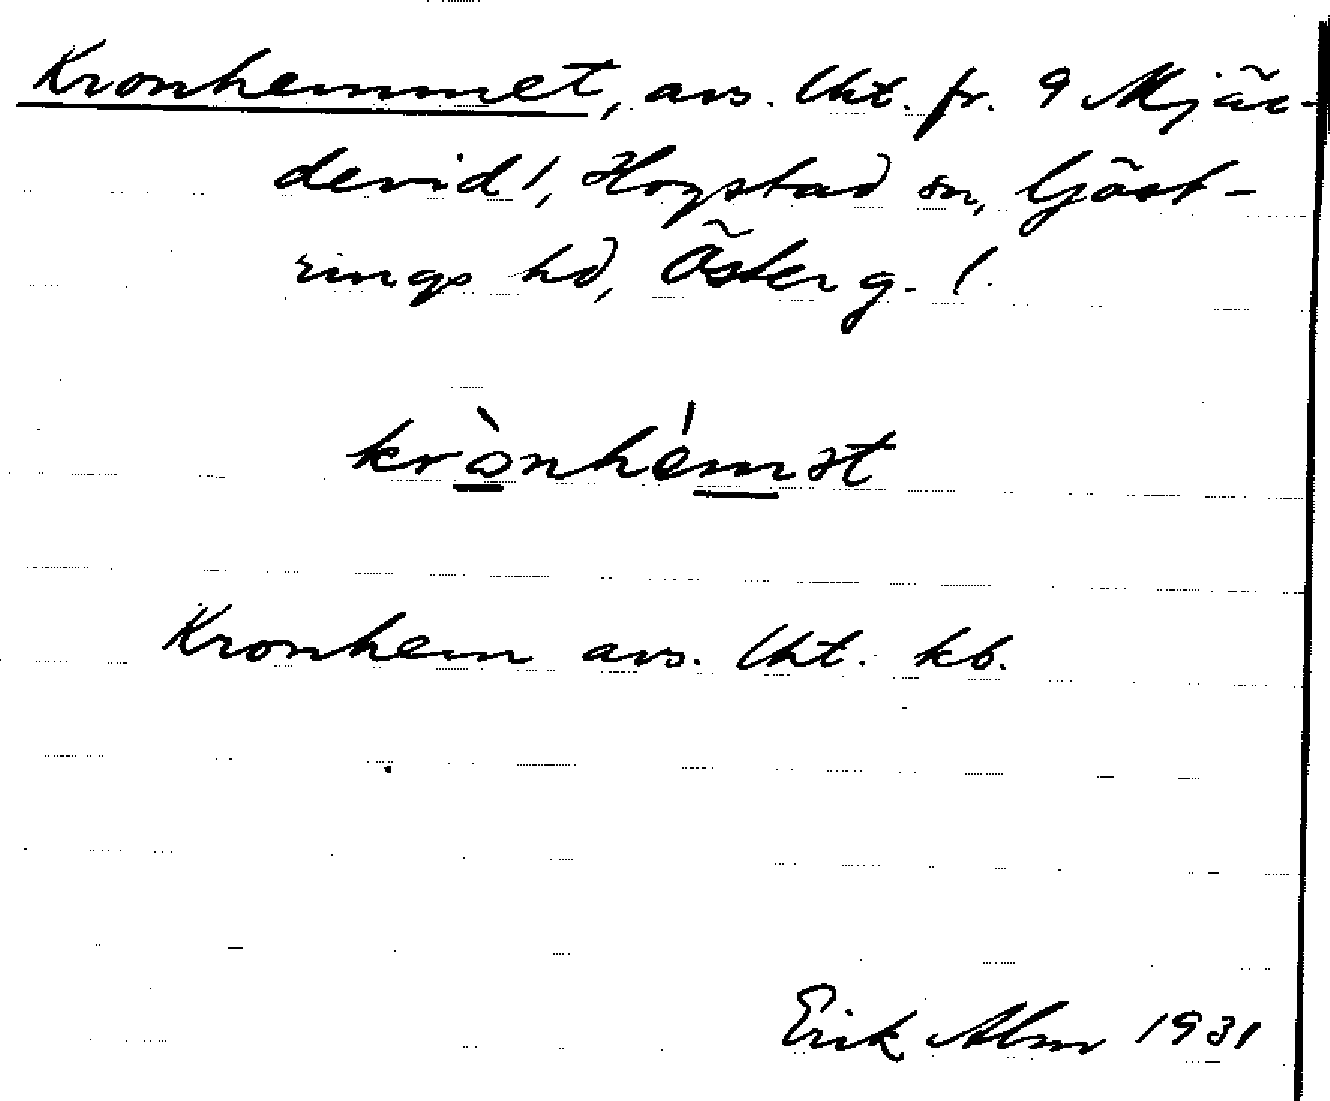 Kronhemmet, avs. lht. fr. 9 Mjär-
devid 1, Hogstad sn, Göst-
rings hd, Österg. l.
krònhémət
Kronhem avs. lht. kb.
Erik Alm 1931